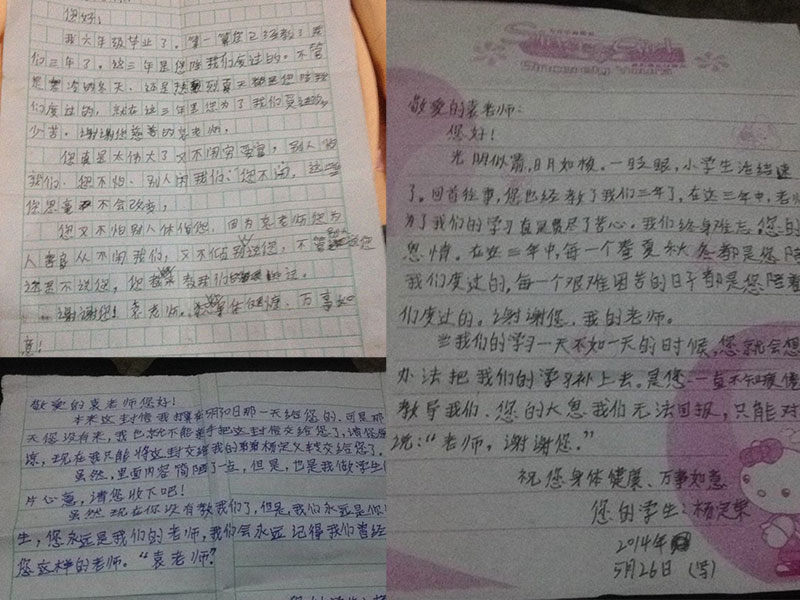 您好！
我六年级毕业了，算一算您已经教了我
们三年了，这三年是您陪我们度过的。不管
是寒冷的冬天，还是炎热夏天都是您陪我
们度过的，就在这三年里您为了我们吃
少苦。谢谢您慈善的袁老师。
您真是太伟大了又不闲穷爱富，别人
我们，您不怕，别人闲我们，您不闲，这
您思毫不会改变，
您又不怕别人体伯您，因为袁老师您为
人善良从不闲我们，又不估别说您，不管
您思不说您，您都教我们
谢谢您！袁老师。祝身体健康、万事如
意！
敬爱的袁老师您好！
本来这封信我打算明10日那一天给您的，可是那
天您没有来，我也就不能亲手把这封信交给您了，请您原
谅，现在我只能将这封交给我的弟弟杨定义转交给您了。
虽然，里面内容简陋了一点，但是，也是我做学生的
片心意，请您收下吧！
虽然现在你没有教我们了，但是，我们永远是您
生，您永远是我们的老师，我们会永远记得我们曾经
您这样的老师。“袁老师”
敬爱的袁老师：
您好！
光明似箭，日月如梭。一眨眼，小学生活结速
了。回首往事，您已经教了我们三年了，在这三年中，老师
为了我们的学习真是费尽了苦心。我们终身难忘，您的
恩情。在这三年中，每一个春夏秋冬都是您陪
我们度过的，每一个艰难困苦的日子都是您陪着
们度过的，谢谢您，我的老师。
当我们的学习一天不如一天的时候，您就会想
办法把我们的学习补上去。是您一直不知疲倦
教导我们、您的大恩我们无法回报，只能对
说：“老师，谢谢您。”
祝您身体健康、万事如意
您的学生：杨定荣
2014年
5月26日（写）